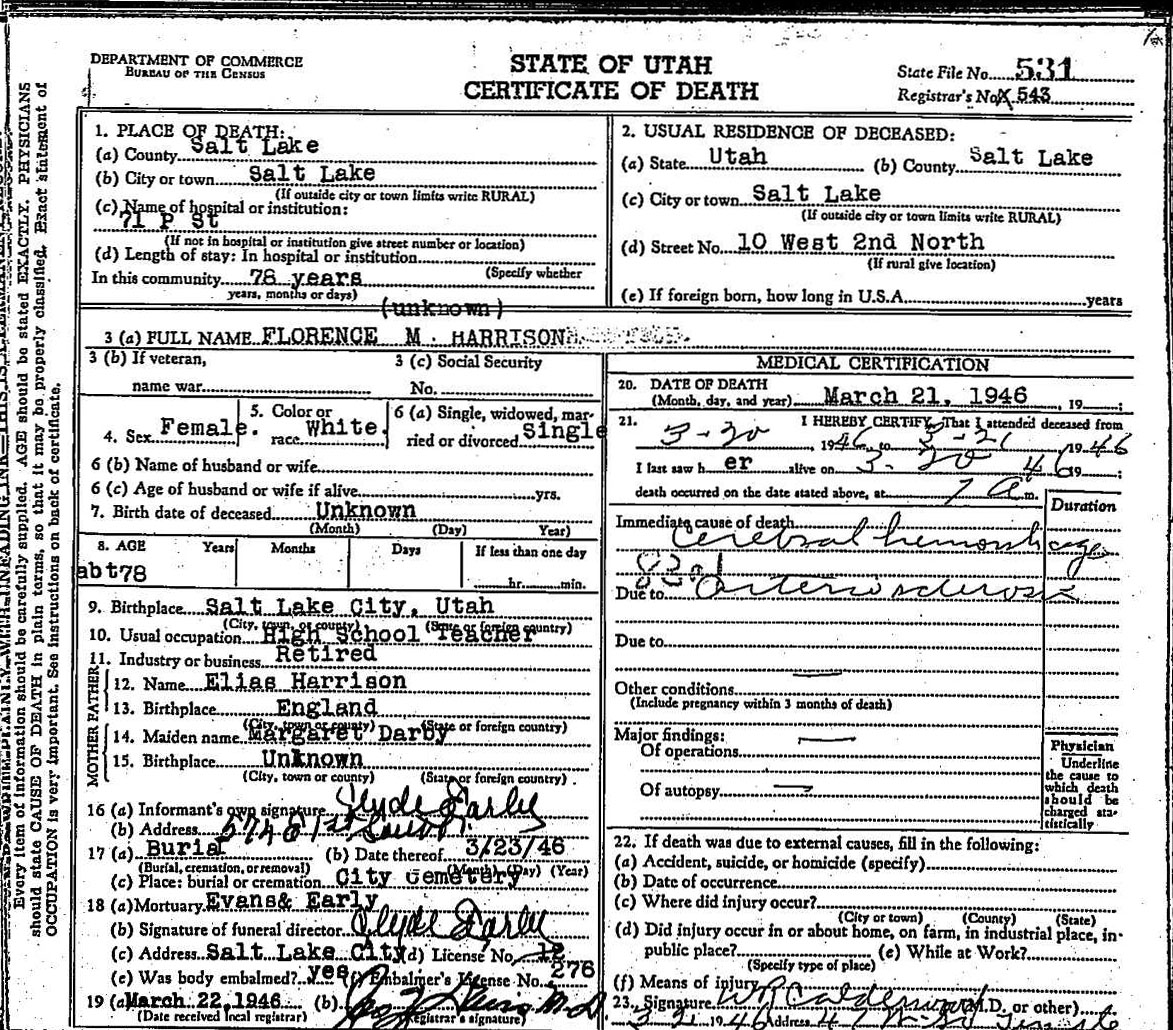 DEPARTMENT OF COMMERCE
BUREAU OF THE CENSUS
STATE OF UTAH
CERTIFICATE OF DEATH
State File No. 531
Registrar's No. X 543
Every item of information should be carefully supplied. AGE should be stated EXACTLY. PHYSICIANS
should state CAUSE OF DEATH in plain terms, so that it may be properly classified. Exact statement of
OCCUPATION is very important. See instructions on back of certificate.
1. PLACE OF DEATH:
(a) County Salt Lake
(b) City or town Salt Lake
(If outside city or town limits write RURAL)
(c) Name of hospital or institution:
71 P St
(If not in hospital or institution give street number or location)
(d) Length of stay: In hospital or institution
(Specify whether
In this community 78 years
years, months or days)
2. USUAL RESIDENCE OF DECEASED:
(a) State Utah (b) County Salt Lake
(c) City or town Salt Lake
(If outside city or town limits write RURAL)
(d) Street No. 10 West 2nd North
(If rural give location)
(e) If foreign born, how long in U.S.A. years
(unknown)
3 (a) FULL NAME FLORENCE M. HARRISON
3 (b) If veteran,
name war
3 (c) Social Security
No.
4. Sex Female.
5. Color or
race White.
6 (a) Single, widowed, mar-
ried or divorced Single
6 (b) Name of husband or wife
6 (c) Age of husband or wife if alive yrs.
7. Birth date of deceased Unknown
(Month) (Day) Year)
8. AGE Years Months Days If less than one day
abt78 hr. min.
9. Birthplace Salt Lake City, Utah
(City, town, or county) (State or foreign country)
10. Usual occupation High School Teacher
11. Industry or business Retired
FATHER
12. Name Elias Harrison
13. Birthplace England
(City, town or county) (State or foreign country)
MOTHER
14. Maiden name Margaret Darby
15. Birthplace Unknown
(City, town or county) (State or foreign country)
16 (a) Informant's own signature Clyde Early
(b) Address 574 E 1st
17 (a) Burial (b) Date thereof 3/23/46
(Burial, cremation, or removal) (Month) (Day) (Year)
(c) Place: burial or cremation City Cemetery
18 (a) Mortuary Evans& Early
(b) Signature of funeral director Clyde Early
(c) Address Salt Lake City (d) License No. 12
(e) Was body embalmed? yes (f) Embalmer's License No. 276
19 (a) March 22,1946 (b) M.D.
(Date received local registrar) Registrar's signature)
MEDICAL CERTIFICATION
20. DATE OF DEATH
(Month, day, and year) March 21, 1946, 19 ;
21. I HEREBY CERTIFY, That I attended deceased from
3-20, 1946 to 3-21 1946
I last saw h er alive on 3-20 46 19 ;
death occurred on the date stated above, at 7 A m.
Duration
Immediate cause of death
Cerebral hemorrhage
83a1
Due to Arteriosclerosis
Due to
Other conditions
(Include pregnancy within 3 months of death)
Major findings:
Of operations
Of autopsy
Physician
Underline
the cause to
which death
should be
charged sta-
tistically
22. If death was due to external causes, fill in the following:
(a) Accident, suicide, or homicide (specify)
(b) Date of occurrence
(c) Where did injury occur?
(City or town) (County) (State)
(d) Did injury occur in or about home, on farm, in industrial place, in
public place? (e) While at Work?
(Specify type of place)
(f) Means of injury
23. Signature W R Calderwood (M.D. or other)
3-21 1946 Address